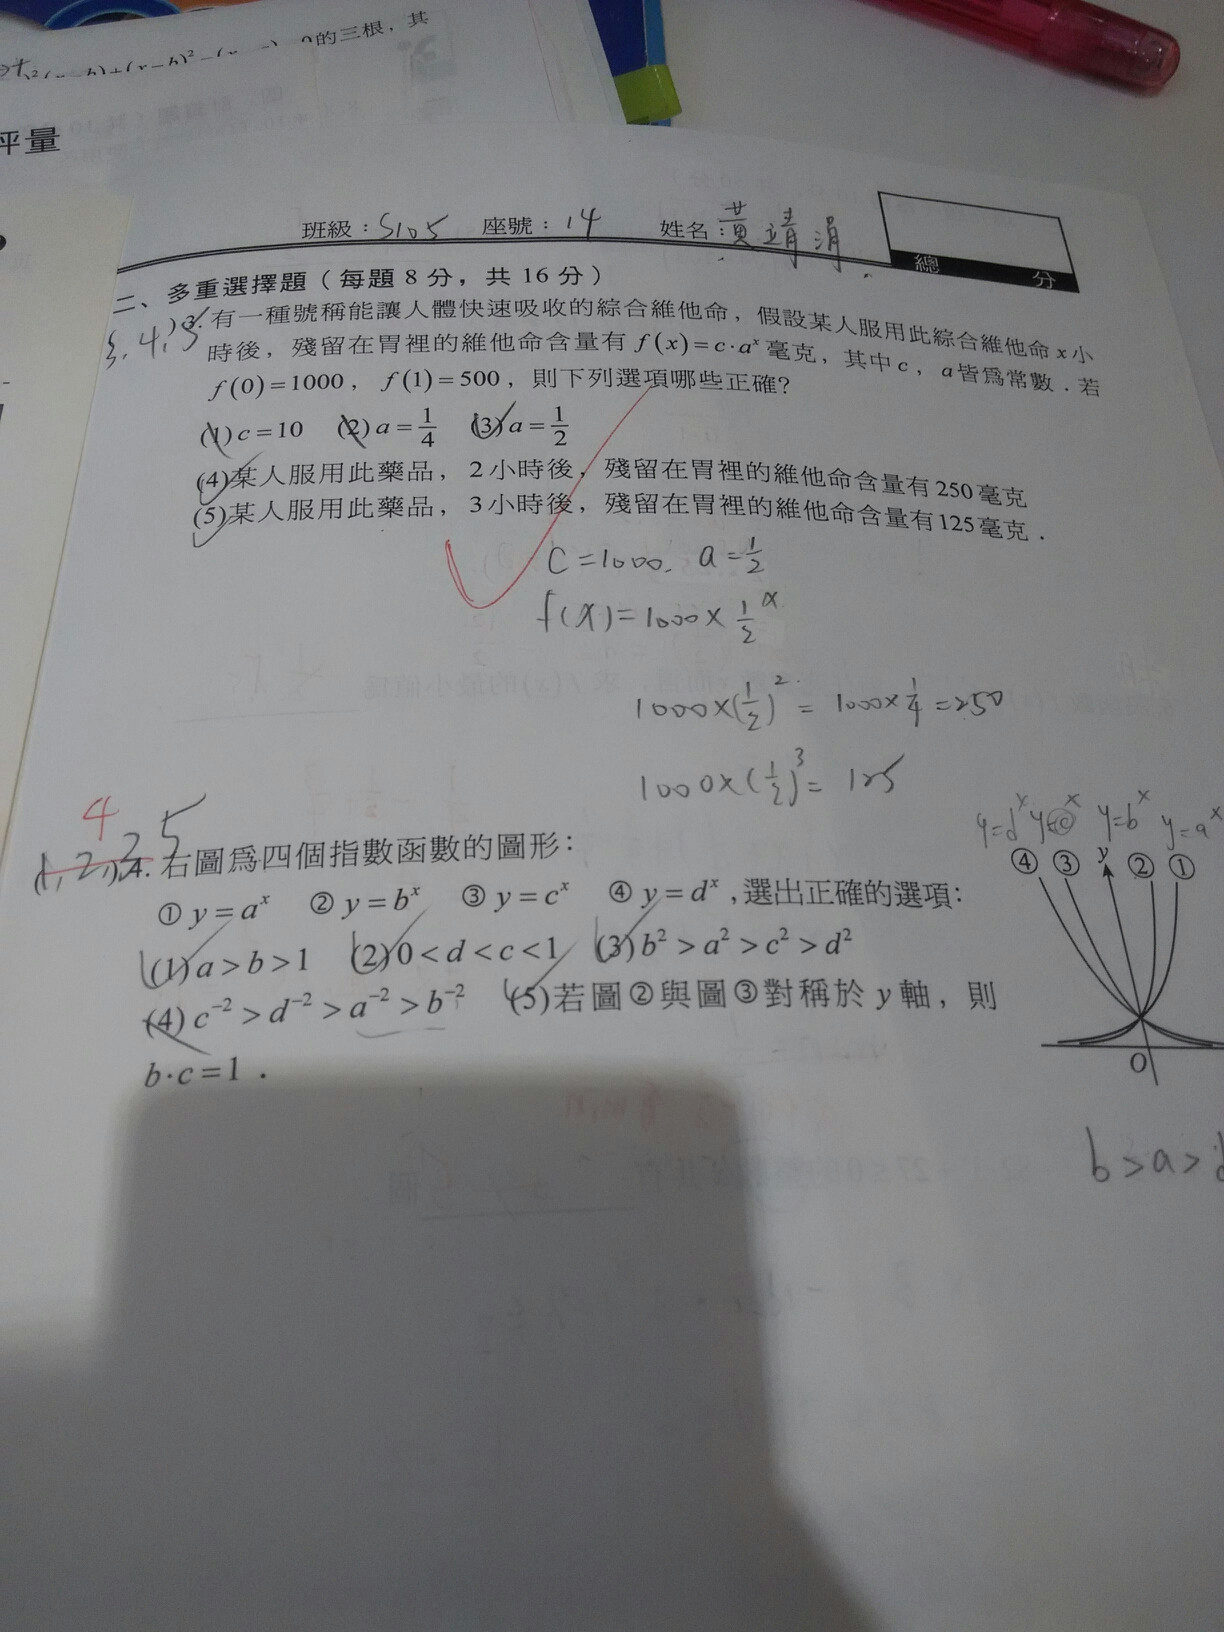 的三根，其
評量
班級：S105 座號：14 姓名：黃靖涓
總 分
二、多重選擇題（每題 8 分，共 16 分）
3,4,5 )3. 有一種號稱能讓人體快速吸收的綜合維他命，假設某人服用此綜合維他命 x 小
時後，殘留在胃裡的維他命含量有 f(x)=c·aˣ 毫克，其中 c，a 皆為常數．若
f(0)=1000，f(1)=500，則下列選項哪些正確？
(1) c=10 (2) a=1/4 (3) a=1/2
(4)某人服用此藥品，2 小時後，殘留在胃裡的維他命含量有 250 毫克
(5)某人服用此藥品，3 小時後，殘留在胃裡的維他命含量有125毫克．
C=1000. a=1/2
f(x)=1000×1/2ˣ
1000×(1/2)²=1000×1/4=250
1000×(1/2)³=125
4
y=dˣ y=cˣ y=bˣ y=aˣ
(1,2,3,5 )4. 右圖為四個指數函數的圖形：
④ ③ y ② ①
① y=aˣ ② y=bˣ ③ y=cˣ ④ y=dˣ，選出正確的選項：
(1) a>b>1 (2) 0<d<c<1 (3) b²>a²>c²>d²
(4) c⁻²>d⁻²>a⁻²>b⁻² (5)若圖②與圖③對稱於 y 軸，則
b·c=1．
O
b>a>